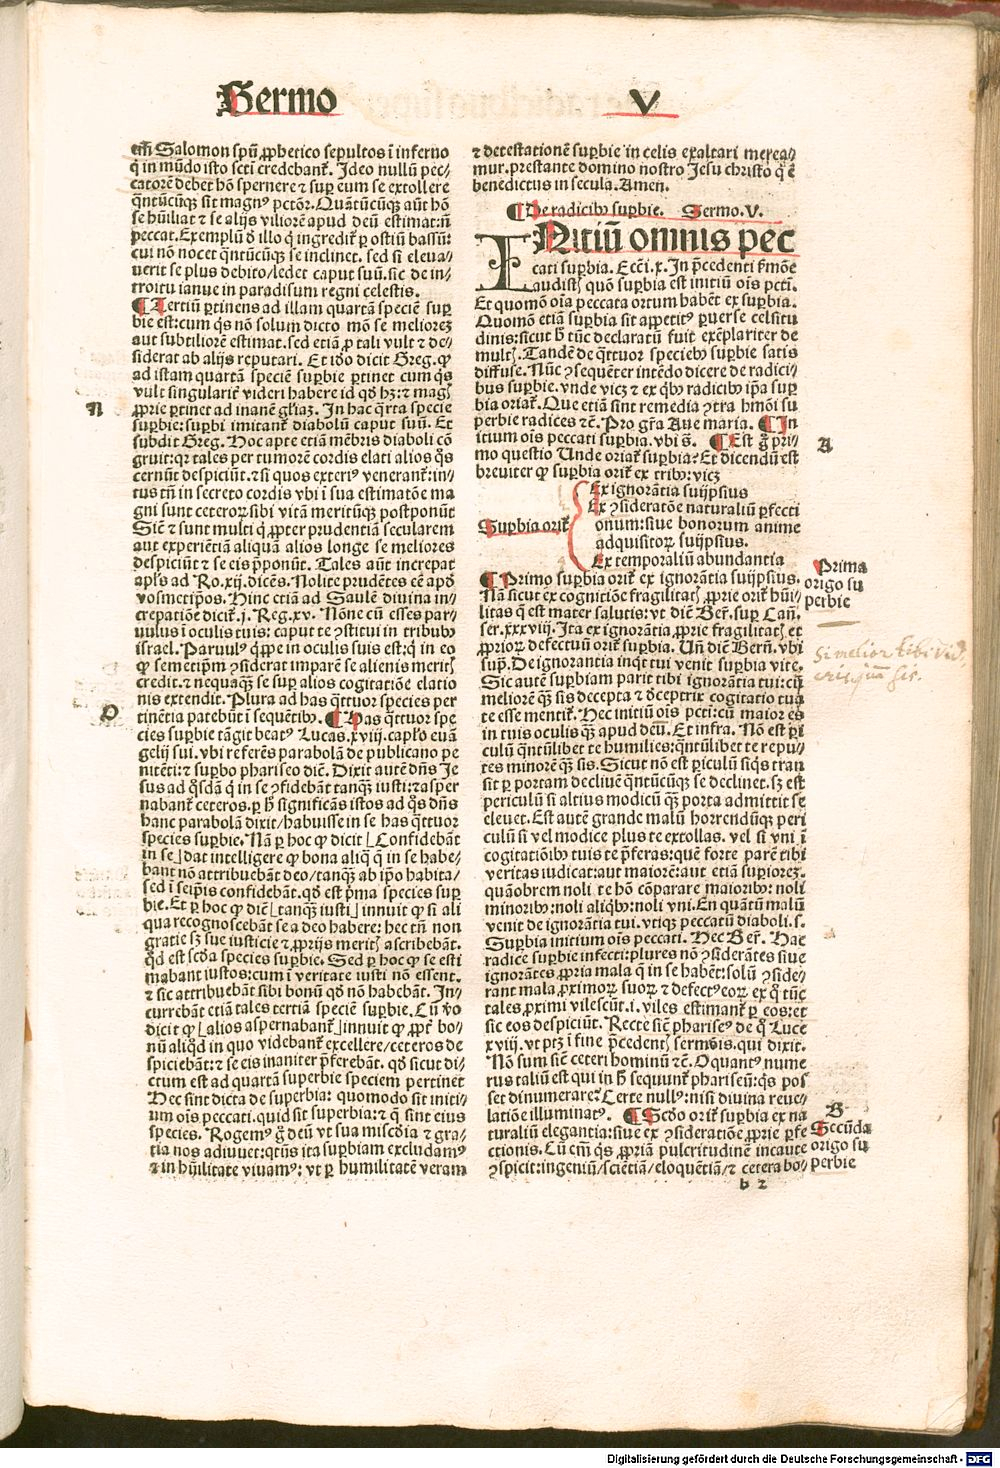 Sermo V
em̄ Salomon spū ꝓphetico sepultos ī inferno
q̄ in mūdo isto scti credebant᷑. Ideo nullū pec-
catorē debet hō spernere ⁊ suꝑ eum se extollere
q̄ntūcūqꝫ sit magnꝰ pctōr. Quātūcūqꝫ aūt hō
se hūiliat ⁊ se alijs viliorē apud deū estimat: nō
peccat. Exemplū ō illo q̄ ingredit᷑ ꝑ ostiū bassū:
cui nō nocet q̄ntūcūqꝫ se inclinet. sed si eleua/
uerit se plus debito/ledet caput suū. sic de in-
troitu ianue in paradisum regni celestis.
¶ Tertiū ꝑtinens ad illam quartā speciē suꝑ
bie est: cum q̄s nō solum dicto mō se meliorēꝫ
aut subtiliorē estimat. sed etiā ꝓ tali vult ⁊ de/
siderat ab alijs reputari. Et iďo dicit Greg. ꝙ
ad istam quartā speciē suꝑbie ꝑtinet cum q̄s
vult singularit᷑ videri habere id qď hꝫ: ⁊ magꝭ
ꝓprie ꝑtinet ad inanē gl̄iaꝫ. In hac q̄rta specie
N
suꝑbie: suꝑbi imitant᷑ diabolū caput suū. Et
subdit Greg. Hoc apte etiā mēbris diaboli cō
gruit: qꝛ tales per tumorē cordis elati alios q̄s
cernūt despiciūt. ⁊ si quos exteriꝰ venerant᷑: in/
tus tn̄ in secreto cordis vbi ī sua estimatōe ma
gni sunt ceteroꝝ sibi vitā meritūqꝫ postponūt
Sic̄ ⁊ sunt multi q̄ ꝓpter prudentiā secularem
aut experiētiā aliquā alios longe se meliores
despiciūt ⁊ se eis p̄ponūt. Tales aūt increpat
apl̄s ad Ro. xij. dicēs. Nolite prudētes ēe apď
vosmetip̄os. Hinc etiā ad Saulē diuina in-
crepatiōe dicit᷑. j. Reg. xv. Nōne cū esses par-
uulus ī oculis tuis: caput te ꝯstitui in tribubꝰ
israel. Paruulꝰ q̄ppe in oculis suis est: q̄ in eo
ꝙ semetip̄m ꝯsiderat imparē se alienis meritꝭ
credit. ⁊ nequaqꝫ se suꝑ alios cogitatiōe elatio
nis extendit. Plura ad has q̄ttuor species per
O
tinētia patebūt ī sequētibꝰ. ¶ Has q̄ttuor spe
cies suꝑbie tāgit beatꝰ Lucas. xviij. capl̄o euā
gelij sui. vbi referēs parabolā de publicano pe
nitēti: ⁊ suꝑbo phariseo dic̄. Dixit autē dn̄s Ie
sus ad q̄sdā q̄ in se ꝯfidebāt tanqꝫ iusti: ⁊ asper
nabant᷑ ceteros. ꝑ h̄ significās istos ad q̄s dn̄s
hanc parabolā dixit/habuisse in se has q̄ttuor
species suꝑbie. Nā ꝑ hoc ꝙ dicit ⌊Confidebāt
in se⌋ dat intelligere ꝙ bona aliq̄ q̄ in se habe/
bant nō attribuebāt deo/tanqꝫ ab ip̄o habita/
sed ī seip̄is confidebāt. qď est p̄ma species suꝑ
bie. Et ꝑ hoc ꝙ dic̄ ⌊tanqꝫ iusti⌋ innuit ꝙ si ali
qua recognoscebāt se a deo habere: hec tn̄ non
gratie sꝫ sue iusticie ⁊ ꝓprijs meritꝭ ascribebāt.
qď est scďa species suꝑbie. Sed ꝑ hoc ꝙ se esti
mabant iustos: cum ī veritate iusti nō essent.
⁊ sic attribuebāt sibi bonū qď nō habebāt. In/
currebāt etiā tales tertiā speciē suꝑbie. Cū ꝟo
dicit ꝙ ⌊alios aspernabant᷑⌋ innuit ꝙ ꝓpt᷑ bo/
nū aliqď in quo videbant᷑ excellere/ceteros de
spiciebāt: ⁊ se eis inaniter p̄ferebāt. qď sicut di/
ctum est ad quartā superbie speciem pertinet
Hec sint dicta de superbia: quomodo sit initi/
um oīs peccati. quid sit superbia: ⁊ q̄ sint eius
species. Rogemꝰ g̊ deū vt sua miscďia ⁊ gra/
tia nos adiuuet: q̄tūs ita suꝑbiam excludamꝰ
⁊ in hūilitate viuamꝰ: vt ꝑ humilitatē veram
⁊ detestationē suꝑbie in celis exaltari merea/
mur. prestante domino nostro Jesu christo q̄ ē
benedictus in secula. Amen.
¶ De radicibꝰ suꝑbie. Sermo. V.
INitiū omnis pec
cati suꝑbia. Ecc̄i. x. In p̄cedenti ẜmōe
audistꝭ quō suꝑbia est initiū oīs pcti.
Et quomō oīa peccata ortum habēt ex suꝑbia.
Quomō etiā suꝑbia sit appetitꝰ ꝑuerse celsitu
dinis: sicut h̄ tūc declaratū fuit exēplariter de
multꝭ. Tandē de q̄ttuor speciebꝰ suꝑbie satis
diffuse. Nūc ꝯsequēter intēdo dicere de radici/
bus suꝑbie. vnde vicꝫ ⁊ ex q̄bꝰ radicibꝰ ip̄a suꝑ
bia oriat᷑. Que etiā sint remedia ꝯtra hmōi su
perbie radices ⁊c̄. Pro gr̄a Aue maria. ¶ In
itium oīs peccati suꝑbia. vbi s̄. ¶ Est g̊ pri/
A
mo questio Unde oriat᷑ suꝑbia? Et dicendū est
breuiter ꝙ suꝑbia orit᷑ ex tribꝰ: vicꝫ
Suꝑbia orit᷑
Ex ignorātia suijpsius
Ex ꝯsideratōe naturaliū ꝑfecti
onum: siue bonorum anime
adquisitoꝝ suijpsius.
Ex temporaliū abundantia
¶ Primo suꝑbia orit᷑ ex ignorātia suijpsius.
Prima
origo su
perbie
Nā sicut ex cognitiōe fragilitatꝭ ꝓprie orit᷑ hūi/
litas q̄ est mater salutis: vt dic̄ Ber̄. suꝑ Can̄.
ser. xxxviij. Ita ex ignorātia ꝓprie fragilitatꝭ et
ꝓprioꝝ defectuū orit᷑ suꝑbia. Un̄ dic̄ Bern̄. vbi
si melior tibi vi
sup̄. De ignorantia inq̄t tui venit suꝑbia vite.
Sic autē suꝑbiam parit tibi ignorātia tui: cū
meliorē qꝫ sis decepta ⁊ ďceptrix cogitatio tua
te esse mentit᷑. Hec initiū oīs pcti: cū maior es
in tuis oculis qꝫ apud deū. Et infra. Nō est ꝑi
culū q̄ntūlibet te humilies: q̄ntūlibet te repu/
tes minorē qꝫ sis. Sicut nō est ꝑiculū siq̄s tran
sit ꝑ portam decliuē q̄ntūcūqꝫ se declinet. sꝫ est
periculū si altius modicū qꝫ porta admittit se
eleuet. Est autē grande malū horrendūqꝫ peri
culū si vel modice plus te extollas. vel si vni ī
cogitatiōibꝰ tuis te p̄feras: quē forte parē tibi
veritas iudicat: aut maiorē: aut etiā superiorēꝫ.
quāobrem noli te hō cōparare maioribꝰ: noli
minoribꝰ: noli aliq̄bꝰ: noli vni. En quātū malū
venit de ignorātia tui. vtiqꝫ peccatū diaboli. s.
Suꝑbia initium oīs peccati. Hec Ber̄. Hac
radice suꝑbie infecti: plures nō ꝯsiderātes siue
ignorātes ꝓpria mala q̄ in se habēt: solū ꝯside/
rant mala ꝓximoꝝ suoꝝ ⁊ defectꝰ eoꝝ ex q̄ tūc
tales ꝓximi vilescūt. i. viles estimant᷑ ꝑ eos: et
sic eos despiciūt. Recte sic̄ phariseꝰ de q̄ Luce
xviij. vt ptꝫ ī fine p̄cedentꝭ sermōis. qui dixit.
Nō sum sic̄ ceteri hominū ⁊c̄. O quantꝰ nume
rus taliū est qui in h̄ sequunt᷑ phariseū: q̄s pos
set dinumerare? Certe nullꝰ: nisi diuina reue/
latiōe illuminatꝰ. ¶ Scďo orit᷑ suꝑbia ex na
B
Secūda
origo su
perbie
turaliū elegantia: siue ex ꝯsideratiōe ꝓprie ꝑfe
ctionis. Cū em̄ q̄s ꝓpriā pulcritudinē incaute
ꝯspicit: ingeniū/sciētiā/eloquētiā/⁊ cetera bo/
b 2
Digitalisierung gefördert durch die Deutsche Forschungsgemeinschaft - DFG